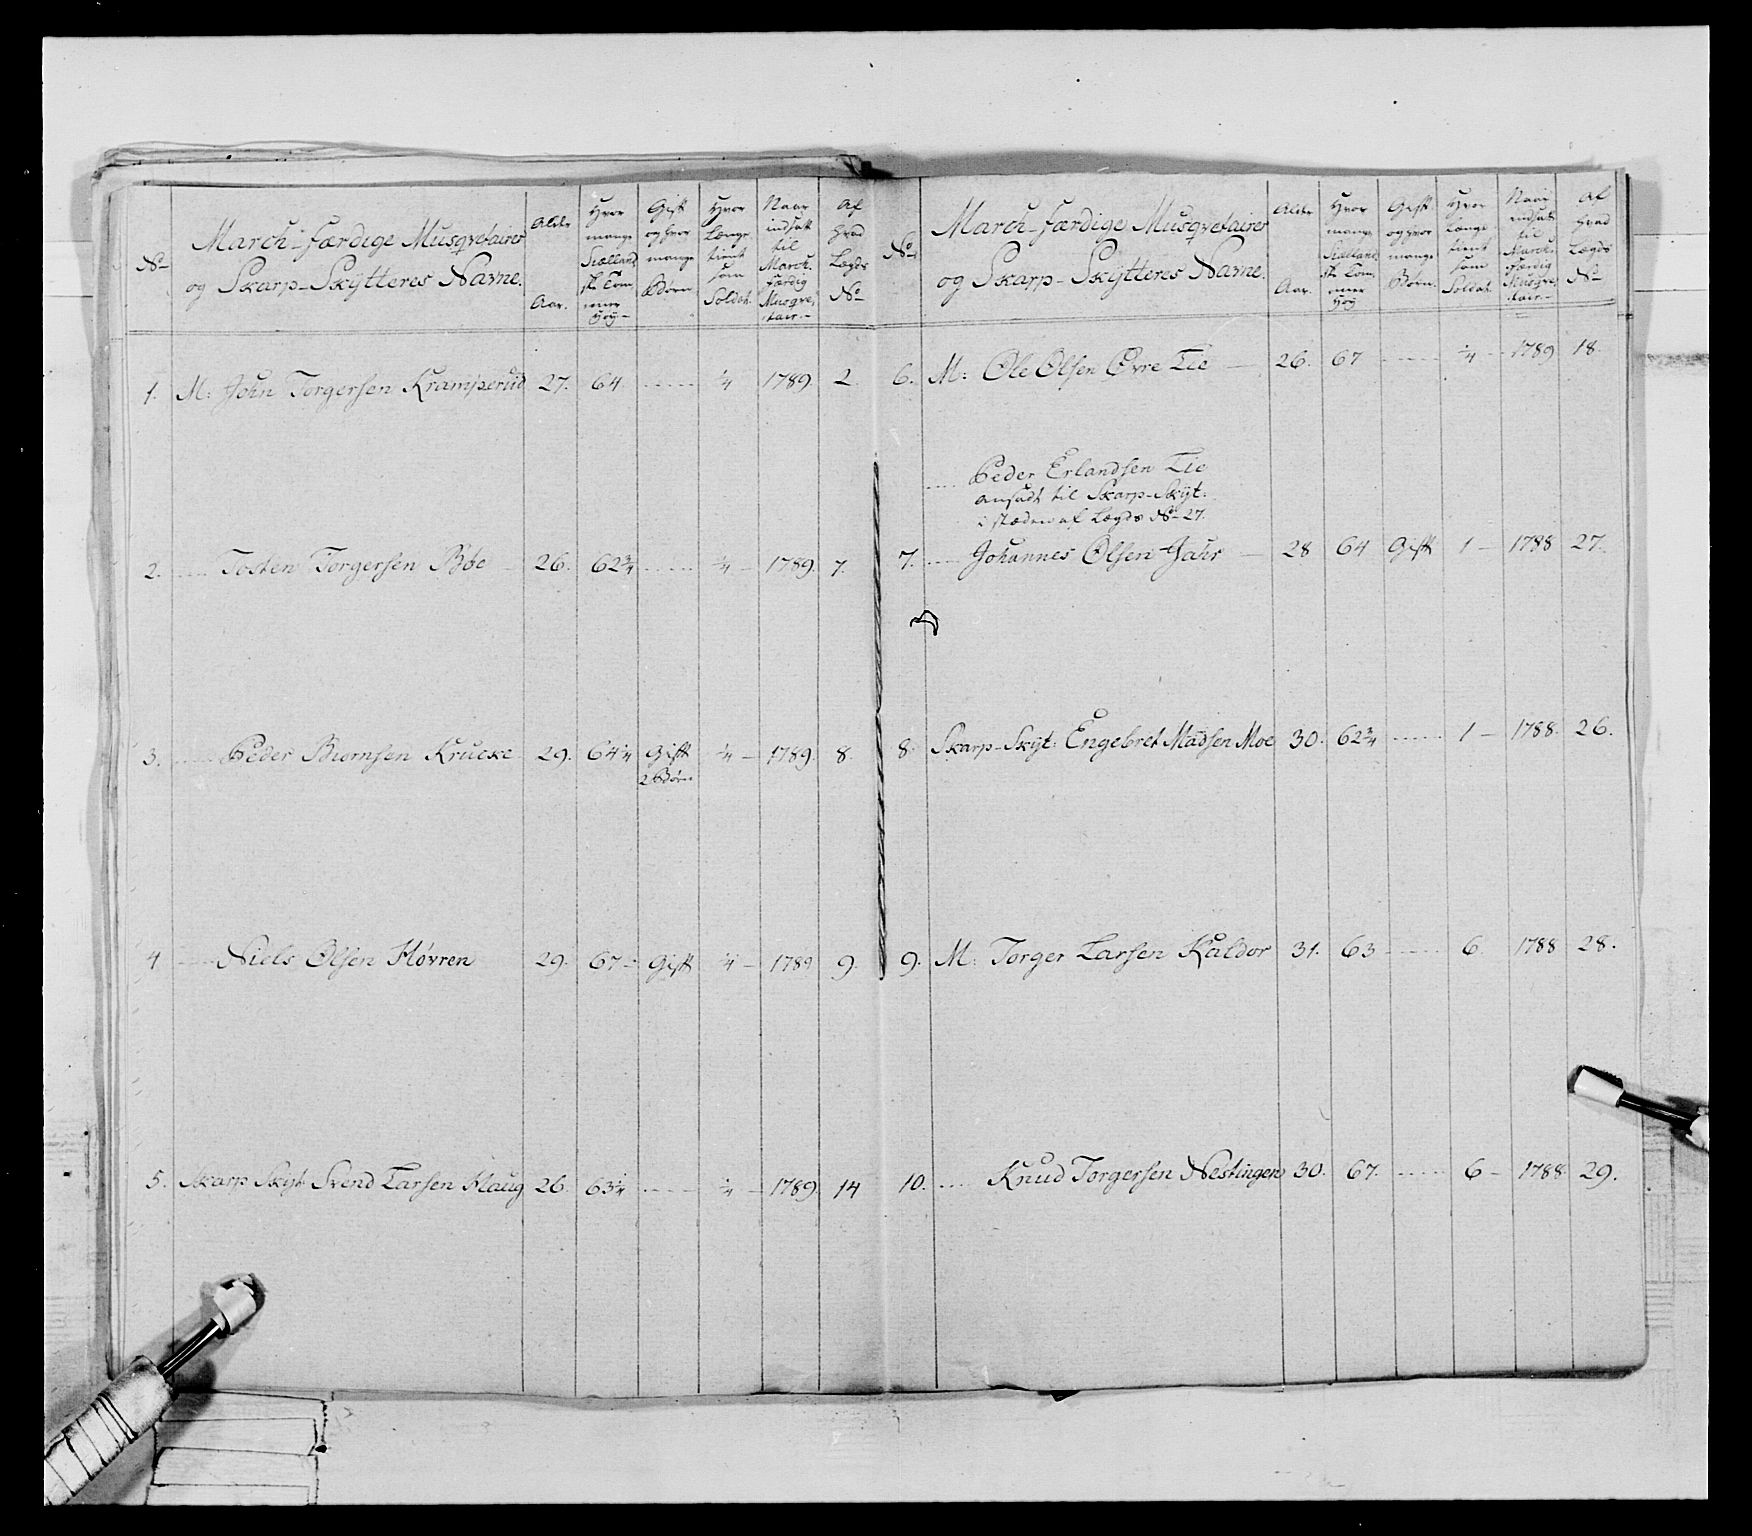 No
March-færdige Musqvetairer
og Skarp-Skÿtteres Navne.
Alder
Aar.
Hvor
mange
Siælland-
sk Tom-
mer
Høÿ
Gift
og hvor
mange
Børn.
Hvor
længe
tient
som
Soldat.
Naar
indsatt
til
March-
færdig
Musqve-
tair.
Af
hvad
Lægds
No
1. M: John Torgersen Kramperud 27. 64. ¼ 1789. 2.
2. Tosten Torgersen Bøe 26. 62¾ ¼ 1789. 7.
3. Peder Biørnsen Krueke 29. 64¼ Gift ¼ 1789. 8.
2 Børn
4 Niels Olsen Høvren 29. 67 Gift ¼ 1789 9.
5. Skarp Skÿt Svend Larsen Haug 26. 63¼ ¼ 1789. 14
No
March-færdige Musqvetairer
og Skarp-Skÿtteres Navne.
Alder
Aar.
Hvor
mange
Siælland-
sk Tom-
mer
Høÿ
Gift
og hvor
mange
Børn.
Hvor
længe
tient
som
Soldat.
Naar
indsatt
til
March-
færdig
Musqve-
tair.
Af
hvad
Lægds
No
6. M: Ole Olsen Øvre Lie 26. 67 ¼ 1789 18.
Peder Erlandsen Lie
ansadt til Skarp-Skÿt:
i stæden af Lægds No 27.
7. Johannes Olsen Jahr 28 64 Gift 1 1788 27.
8. Skarp-Skÿt: Engebret Madsen Moe 30. 62¾ 1 1788. 26.
9. M: Torger Larsen Kaldor 31. 63 6. 1788 28.
10. Knud Torgersen Nestingen 30. 67. 6 1788 29.